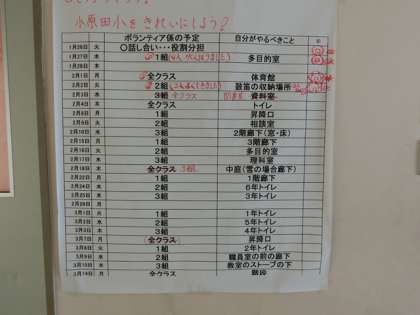 小原田小をきれいにしよう!
ボランティア係の予定 自分がやるべきこと
1月26日 火 〇話し合い・・・役割分担
1月27日 水 1組 多目的室
1月28日 木
2月1日 月 全クラス 体育館
2月2日 火 2組 鼓笛の収納場所
2月3日 水 3組 全クラス 図書室 資料室
2月4日 木 全クラス トイレ
2月8日 月 1組 昇降口
2月9日 火 2組 相談室
水 3組 2階廊下(窓・床)
月 1組 3階廊下
火 2組 多目的室
2月17日 水 3組 理科室
2月18日 木 全クラス 3組 中庭(雪の場合廊下)
2月22日 月 1組 1階廊下
2月24日 水 2組 6年トイレ
2月25日 木 3組 3年トイレ
3月1日 火 1組 1年トイレ
3月2日 水 2組 5年トイレ
3月3日 木 3組 4年トイレ
3月7日 月 全クラス 昇降口
3月8日 火 1組 2年トイレ
3月9日 水 2組 職員室の前の廊下
3月10日 木 3組 教室のストーブの下
3月14日 月 全クラス 階段